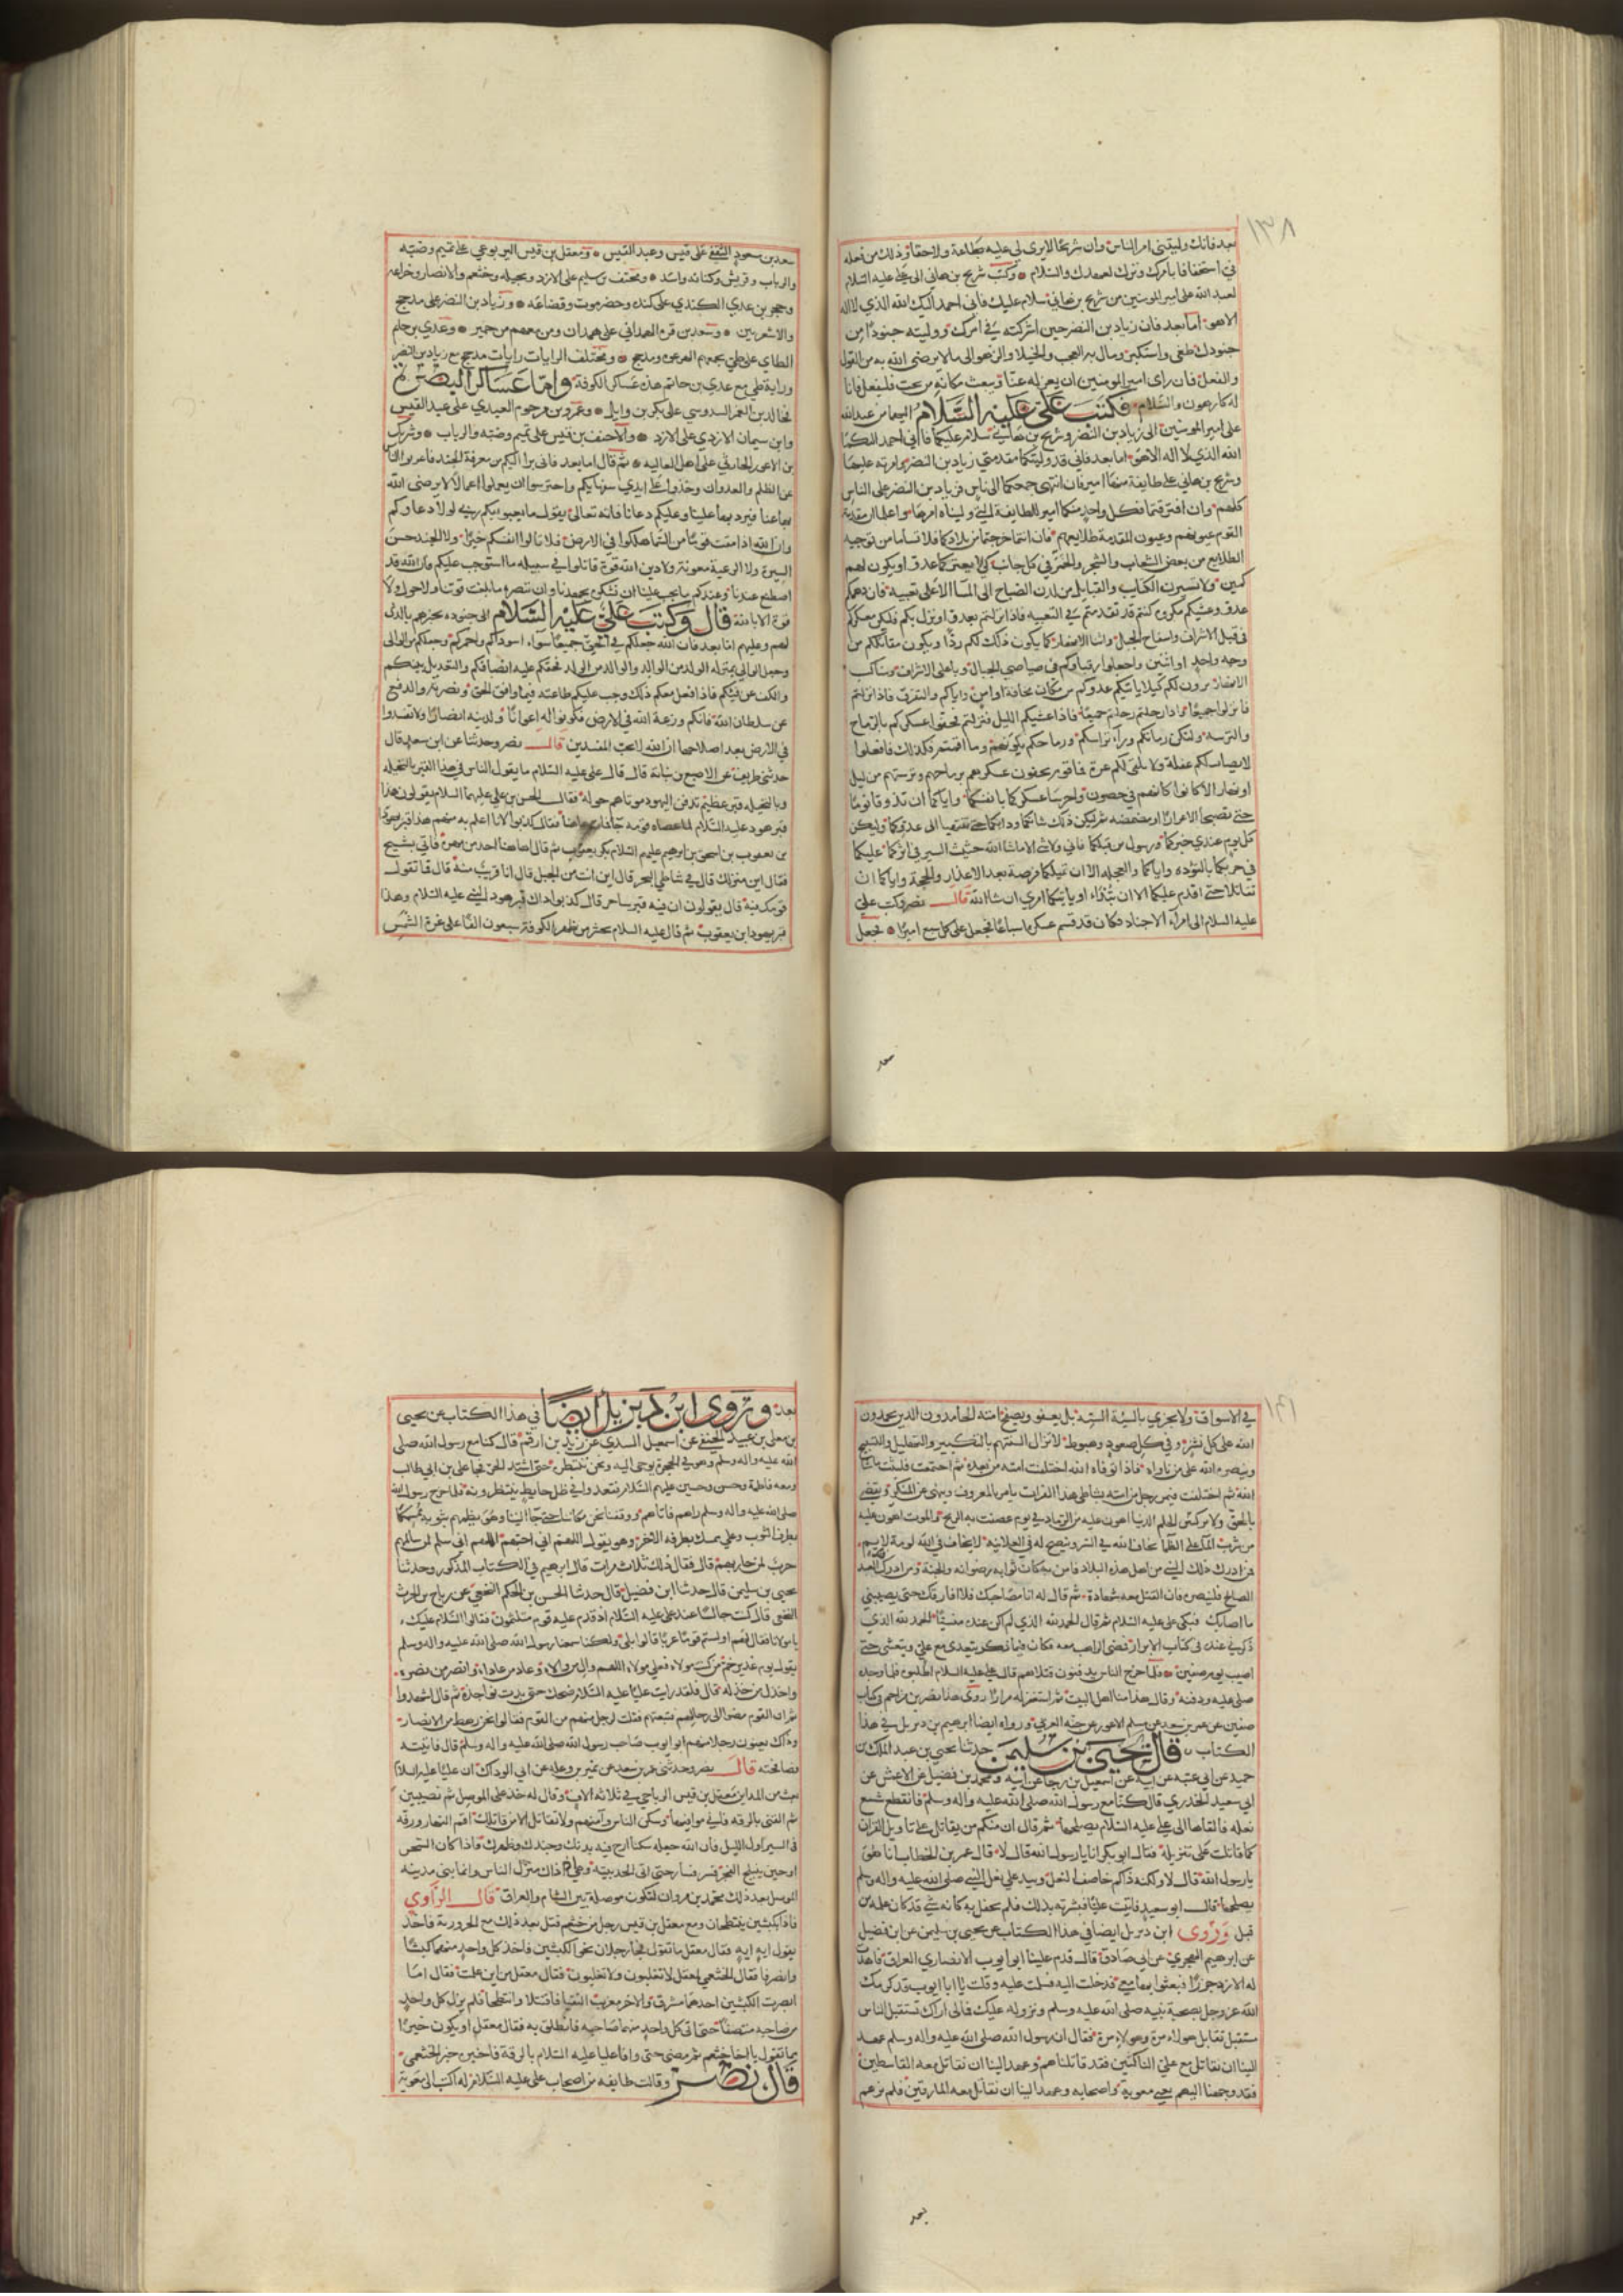 ١٣٨
بعد فانك وليتني امر الناس وان شريحا لا يرى لي عليه طاعة ولا حقا وذلك من فعله
بي استخفافا بامرك وترك لعهدك والسلام وكتب شريح بن هاني الى علي عليه السلام
لعبد الله علي امير المومنين من شريح بن هاني سلام عليك فاني احمد اليك الله الذي لا اله
الا هو اما بعد فان زياد بن النضر حين اشركته في امرك ووليته جنودا من
جنودك طغى واستكبر ومال به العجب والخيلا والزهو الى ما لا يرضى الله به من القول
والفعل فان راى امير المومنين ان يعزله عنا ويبعث مكانه من يحب فليفعل فانا
له كارهون والسلام فكتب علي عليه السلام اليهما من عبد الله
علي امير المومنين الى زياد بن النضر وشريح بن هاني سلام عليكما فاني احمد اليكما
الله الذي لا اله الا هو اما بعد فاني قد وليتكما مقدمتي زياد بن النضر وامرته عليها
وشريح بن هاني على طايفة منها امير فان انتهى جمعكما الى باس فزياد بن النضر على الناس
كلهم وان افترقتما فكل واحد منكما امير الطايفة التي وليناه امرها واعلما ان مقدمة
القوم عيونهم وعيون المقدمة طلايعهم فان انتما خرجتما من بلادكما فلا تساما من توجيه
الطلايع من بعض الشعاب والشجر والخمر في كل جانب كي لا يغتركما عدو او يكون لهم
كمين ولا تسيرن الكتايب والقبايل من لدن الصباح الى المسا الا على تعبية فان دهمكم
عدو وغشيكم مكروه كنتم قد تقدمتم في التعبية فاذا نزلتم بعدو او نزل بكم فليكن معسكركم
في قبل الاشراف وسفاح الجبل واثنا الانهار كما يكون ذلك لكم ردا ويكون مقاتلتكم من
وجه واحد او اثنين واجعلوا رقباكم في صياصي الجبال وباعلى الاشراف ومناكب
الانهار يرون لكم كيلا ياتيكم عدوكم من مكان مخافة او امن واياكم والتفرق فاذا نزلتم
فانزلوا جميعا واذا رحلتم رحلتم جميعا فاذا غشيكم الليل فنزلتم فحفوا عسكركم بالرماح
والترسة ولتكن رماتكم وراء تراسكم ورماحكم يلونهم وما اقمتم فكذلك فافعلوا
لا يصاب لكم غفلة ولا تلقى لكم غرة فما قوم يحفون عسكرهم برماحهم وترستهم من ليل
او نهار الا كانوا كانهم في حصون واحرسا عسكركما بانفسكما واياكما ان تذوقا نوما
حتى تصبحا الا غرارا او مضمضة ثم ليكن ذلك شانكما ودابكما حتى تنتهيا الى عدوكما وليكن
كل يوم عندي خبركما ورسول من قبلكما فاني ولا شي الا ما شا الله حثيث السير في اثركما عليكما
في حربكما بالتوده واياكما والعجله الا ان تمكنكما فرصة بعد الاعذار والحجة واياكما ان
تقاتلا حتى اقدم عليكما الا ان تبدا او ياتيكما امري ان شا الله قال نصر وكتب علي
عليه السلام الى امراء الاجناد وكان قد قسم عسكره اسباعا فجعل على كل سبع اميرا فجعل
سعد
سعد بن مسعود الثقفي على قيس وعبد القيس ومعقل بن قيس اليربوعي على تميم وضبه
والرباب وقريش وكنانه واسد ومخنف بن سليم على الازد وبجيله وخثعم والانصار وخزاعه
وحجر بن عدي الكندي على كنده وحضرموت وقضاعه وزياد بن النضر على مذحج
والاشعريين وسعد بن قره الهمداني على همدان ومن معهم من حمير وعدي بن حاتم
الطاي على طي يجمعهم الدعوه مذحج وتختلف الرايات رايات مذحج مع زياد بن النضر
وراية طي مع عدي بن حاتم هذه عساكر الكوفة واما عساكر البصرة
فخالد بن المعمر السدوسي على بكر بن وايل وعمرو بن مرحوم العبدي على عبد القيس
وابن سيمان الازدي على الازد والاحنف بن قيس على تميم وضبه والرباب وشريك
بن الاعور الحارثي على اهل العاليه ثم قال اما بعد فاني برا اليكم من معرفة الجند فاعربوا الناس
عن الظلم والعدوان وخذوا على ايدي سفهايكم واحترسوا ان يعملوا اعمالا لا يرضى الله
بها عنا فيرد بها علينا وعليكم دعانا فانه تعالى يقول ما يعبوا بكم ربي لولا دعاوكم
وان الله اذا مقت قوما من السما هلكوا في الارض فلا تالوا انفسكم خيرا ولا الجند حسن
السيرة ولا الرعية معونة ولا دين الله قوة فابلوا في سبيله ما استوجب عليكم فان الله قد
اصطنع عندنا وعندكم ما يجب علينا ان نشكره بجهدنا وان ننصره ما بلغت قوتنا ولا حول ولا
قوة الا بالله قال وكتب علي عليه السلام الى جنوده يخبرهم بالذي
لهم وعليهم اما بعد فان الله جعلكم في الحق جميعا سواء اسودكم واحمركم وجعلكم من الوالي
وجعل الوالي بمنزلة الولد من الوالد والوالد من الولد فحقكم عليه انصافكم والتعديل بينكم
والكف عن فيئكم فاذا فعل معكم ذلك وجب عليكم طاعته فيما وافق الحق ونصرته والدفع
عن سلطان الله فانكم وزعة الله في الارض فكونوا له اعوانا ولدينه انصارا ولا تفسدوا
في الارض بعد اصلاحها ان الله لا يحب المفسدين قال نصر وحدثنا عن ابن سعد قال
حدثني طريف عن الاصبغ بن نباتة قال قال علي عليه السلام ما يقول الناس في هذا القبر بالنخيله
وبالنخيله قبر عظيم تدفن اليهود موتاهم حوله فقال الحسن بن علي عليهما السلام يقولون هذا
قبر هود عليه السلام لما عصاه قومه جا فمات هاهنا فقال كذبوا لانا اعلم به منهم هذا قبر يهودا
بن يعقوب بن اسحق بن ابرهيم عليهم السلام بكر يعقوب ثم قال اهاهنا احد من مهره فاتي بشيخ
فقال اين منزلك قال في شاطي البحر قال اين انت من الجبل قال انا قريب منه قال فما تقول
قومك فيه قال يقولون ان فيه قبر ساحر قال كذبوا ذاك قبر هود النبي عليه السلام وهذا
قبر يهودا بن يعقوب ثم قال عليه السلام يحشر من ظهر الكوفة سبعون الفا على غرة الشمس
١٤١
في الاسواق ولا يجزي بالسيئة السيئه بل يعفو ويصفح امته الحامدون الذين يحمدون
الله على كل نشز وفي كل صعود وهبوط لا تزال السنتهم بالتكبير والتهليل والتسبيح
وينصره الله على من ناواه فاذا توفاه الله اختلفت امته من بعده ثم اجتمعت فلبثت ما شا
الله ثم اختلفت فيمر رجل من امته بشاطي هذا الفرات يامر بالمعروف وينهى عن المنكر ويقضي
بالحق ولا يركس الحكم الدنيا اهون عليه من الرماد في يوم عصفت به الريح والموت اهون عليه
من شرب الماء على الظما يخاف الله في السر وينصح له في العلانيه لا يخاف في الله لومة لايم
فمن ادرك ذلك النبي من اهل هذه البلاد فامن به كان ثوابه رضوانه والجنة ومن ادرك العبد
الصالح فلينصره فان القتل معه شهادة ثم قال له انا مصاحبك فلا افارقك حتى يصيبني
ما اصابك فبكى علي عليه السلام ثم قال الحمد لله الذي لم اكن عنده منسيا الحمد لله الذي
ذكرني عنده في كتاب الابرار فمضى الراهب معه فكان فيما ذكر يتغدى مع علي ويتعشى حتى
اصيب يوم صفين فلما خرج الناس يدفنون قتلاهم قال علي عليه السلام اطلبوه فلما وجده
صلى عليه ودفنه وقال هذا منا اهل البيت ثم استغفر له مرارا روى هذا نصر بن مزاحم في كتاب
صفين عن عمر بن سعد عن مسلم الاعور عن حبه العرني ورواه ايضا ابرهيم بن ديزيل في هذا
الكتاب قال يحيى بن سليمن حدثنا يحيى بن عبد الملك بن
حميد عن ابي عتبه عن ابيه عن اسمعيل بن رجا عن ابيه ومحمد بن فضيل عن الاعمش عن
ابي سعيد الخدري قال كنا مع رسول الله صلى الله عليه واله وسلم فانقطع شسع
نعله فالقاها الى علي عليه السلام يصلحها ثم قال ان منكم من يقاتل على تاويل القران
كما قاتلت على تنزيله فقال ابو بكر انا يا رسول الله قال لا قال عمر بن الخطاب انا هو
يا رسول الله قال لا ولكنه ذاكم خاصف النعل وبيد علي نعل النبي صلى الله عليه واله وسلم
يصلحها قال ابو سعيد فاتيت عليا فبشرته بذلك فلم يحفل به كانه شي قد كان علمه من
قبل وروى ابن ديزيل ايضا في هذا الكتاب عن يحيى بن سليمن عن ابن فضيل
عن ابرهيم الهجري عن ابي صادق قال قدم علينا ابو ايوب الانصاري العراق فاهدت
له الازد جزرا فبعثوا بها معي فدخلت اليه فسلمت عليه وقلت يا ابا ايوب قد كرمك
الله عز وجل بصحبة نبيه صلى الله عليه وسلم ونزوله عليك فمالي اراك تستقبل الناس
مستقبل تقاتل هولاء مرة وهولاء مرة فقال ان رسول الله صلى الله عليه واله وسلم عهد
الينا ان نقاتل مع علي الناكثين فقد قاتلناهم وعهد الينا ان نقاتل معه القاسطين
فقد وجهنا اليهم يعني معوية واصحابه وعهد الينا ان نقاتل معه المارقين فلم نرهم
بعد
بعد وروى ابن ديزيل ايضا في هذا الكتاب عن يحيى
بن يعلى بن عبيد الحنفي عن اسمعيل السدي عن زيد بن ارقم قال كنا مع رسول الله صلى
الله عليه واله وسلم وهو في الحجرة يوحى اليه ونحن ننتظره حتى اشتد الحر فجا علي بن ابي طالب
ومعه فاطمة وحسن وحسين عليهم السلام فقعدوا في ظل حايط ينتظرونه فلما خرج رسول الله
صلى الله عليه واله وسلم راهم فاتاهم ووقفنا نحن مكاننا حتى جا الينا وهو يظلهم بثوبه ممسكا
بطرف الثوب وعلي ممسك بطرفه الاخر وهو يقول اللهم اني احبهم اللهم اني سلم لمن سالمهم
حرب لمن حاربهم قال فقال ذلك ثلاث مرات قال ابرهيم في الكتاب المذكور وحدثنا
يحيى بن سليمن قال حدثنا ابن فضيل قال حدثنا الحسن بن الحكم النخعي عن رباح بن الحرث
النخعي قال كنت جالسا عند علي عليه السلام اذ قدم عليه قوم متلثمون فقالوا السلام عليك
يا مولانا فقال لهم اولستم قوما عربا قالوا بلى ولكنا سمعنا رسول الله صلى الله عليه واله وسلم
يقول يوم غدير خم من كنت مولاه فعلي مولاه اللهم وال من والاه وعاد من عاداه وانصر من نصره
واخذل من خذله قال فلقد رايت عليا عليه السلام ضحك حتى بدت نواجذه ثم قال اشهدوا
ثم ان القوم مضوا الى رحالهم فتبعتهم فقلت لرجل منهم من القوم فقالوا نحن رهط من الانصار
وذاك يعنون رجلا منهم ابو ايوب صاحب رسول الله صلى الله عليه واله وسلم قال فاتيته
فصافحته قال نصر وحدثني عمر بن سعد عن نمير بن وعله عن ابي الوداك ان عليا عليه السلام
بعث من المداين معقل بن قيس الرياحي في ثلاثه الاف وقال له خذ على الموصل ثم نصيبين
ثم القني بالرقه فاني موافيها وسكن الناس وآمنهم ولا تقاتل الا من قاتلك اقم النهار ورقه
في السير اول الليل فان الله جعله سكنا ارح فيه بدنك وجندك وظهرك فاذا كان السحر
او حين ينبلج الفجر فسر فسار حتى اتى الحديثه وهي اذ ذاك منزل الناس وانما بنى مدينه
الموصل بعد ذلك محمد بن مروان لتكون موصلة بين الشام والعراق قال الراوي
فاذا بكبشين ينتطحان ومع معقل بن قيس رجل من خثعم قتل بعد ذلك مع الحرورية فاخذ
يقول ايه ايه فقال معقل ما تقول فجا رجلان نحو الكبشين فاخذ كل واحد منهما كبشا
وانصرفا فقال الخثعمي لمعقل لا تغلبون ولا تغلبون فقال معقل من اين علمت فقال اما
ابصرت الكبشين احدهما مشرق والاخر مغرب التقيا فاقتتلا وانتطحا فلم يزل كل واحد
من صاحبه منتصفا حتى اتى كل واحد منهما صاحبه فانطلق به فقال معقل او يكون خيرا
مما تقول يا اخا خثعم ثم مضى حتى وافا عليا عليه السلام بالرقة
قال نصر وقالت طايفه من اصحاب علي عليه السلام له اكتب الى معوية